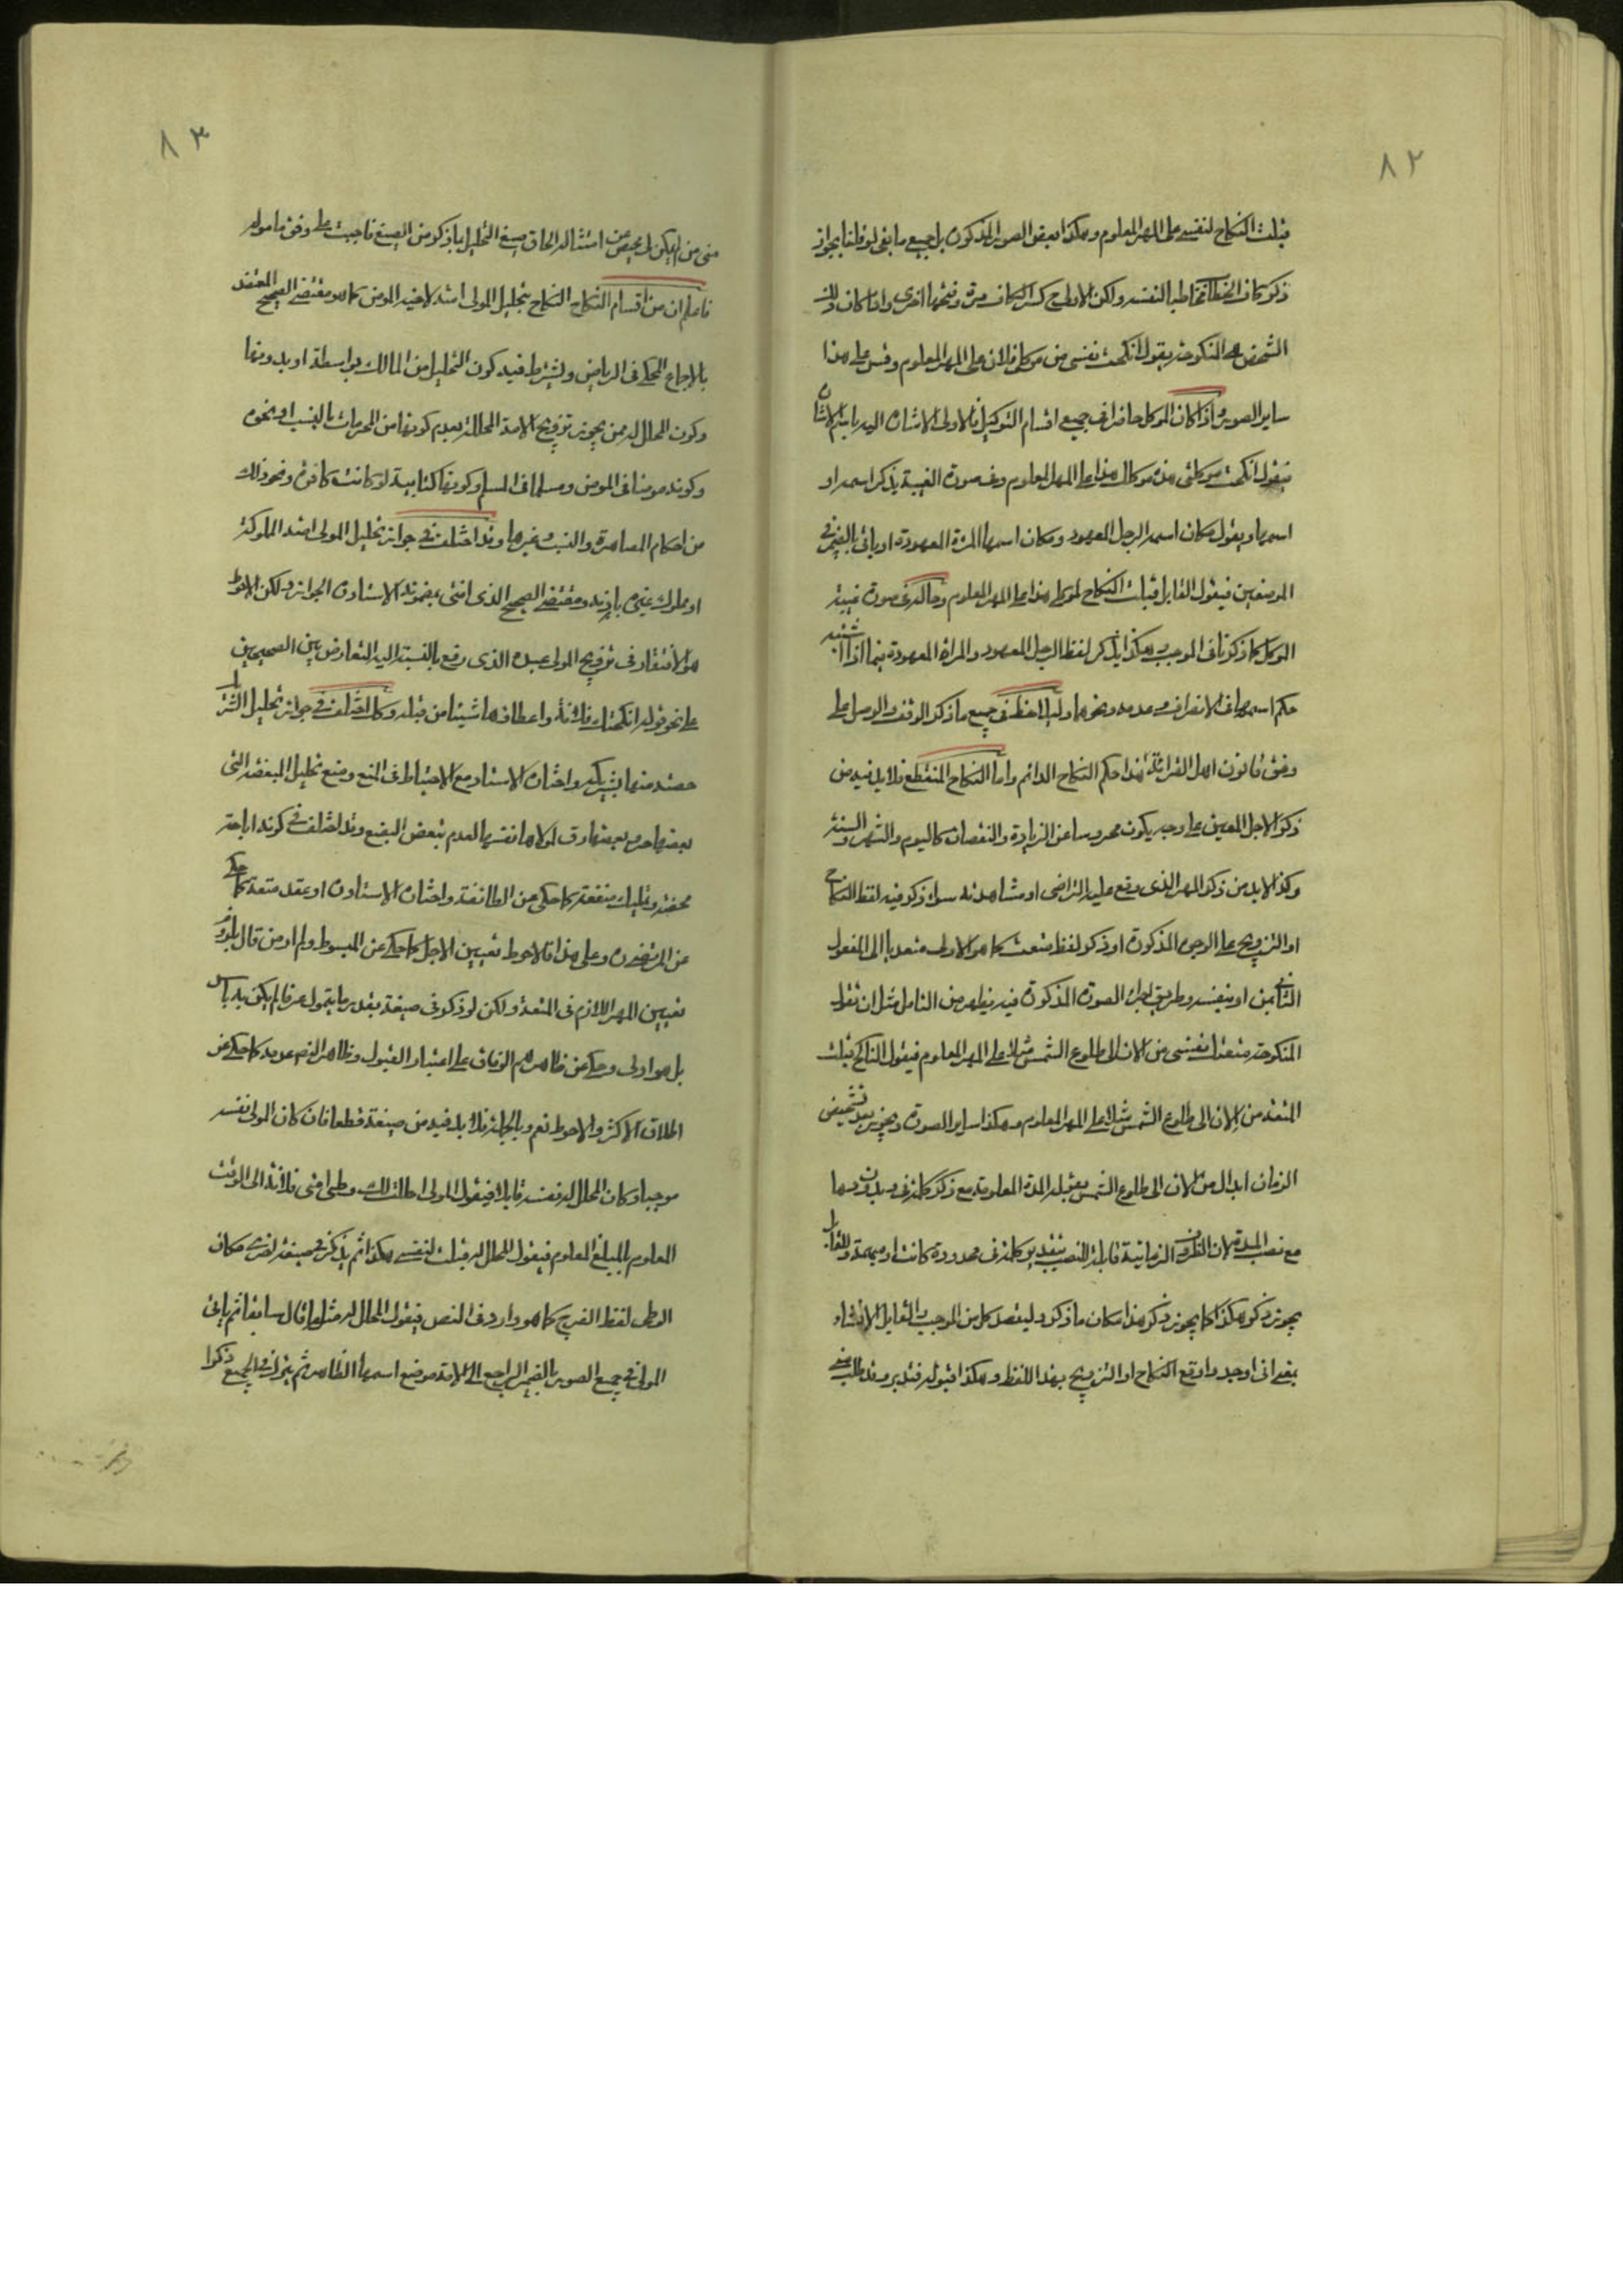 ٨٢
قبلت النكاح لنفسي على المهر المعلوم وهكذا بعض الصور المذكورة بل جميع ما بقى لو قلنا بجواز
ذكر كاف الخطاب مخاطبا لنفسه ولكن الاولى كسر الكاف مرة وفتحها اخرى واذا كان ذلك
الشخص المنكوحة يقول انكحت نفسي من موكلي فلان على المهر المعلوم وقس على هذا
ساير الصور واذا كان الموكل حاضرا في جميع اقسام التوكيل فالاولى الاشارة اليه باسم الاشارة
فيقول انكحت موكلتي هذه موكلك هذا على المهر المعلوم وفي صورة الغيبة يذكر اسمه او
اسمها ويقول مكان اسمه الرجل المعهود ومكان اسمها المرئة المعهودة او ياتى بالضمير في
الموضعين فيقول القابل قبلت النكاح لموكلي هذا على المهر المعلوم وحاله في صورة غيبة
الموكل كما ذكرنا في الموجب وهكذا يذكر لفظ الرجل المعهود والمرأة المعهودة فيما اذا اشتبه
حكم اسمهما في الانصراف وعدمه ونحوها وليلاحظ في جميع ما ذكر الوقف والوصل على
وفق قانون اهل القرائة هذا حكم النكاح الدائم واما النكاح المنقطع فلا بد فيه من
ذكر الاجل المعين على وجه يكون محروسا عن الزيادة والنقصان كاليوم والشهر والسنة
وكذا لابد من ذكر المهر الذى وقع عليه التراضى او مشاهدته سواء ذكر فيه لفظ النكاح
او التزويج على الوجوه المذكورة او ذكر لفظ متعت كما هو الاولى متعديا الى المفعول
الثانى بمن او بنفسه وطريق اجراء الصورة المذكورة فيه يظهر من التامل مثل ان تقول
المنكوحة متعتك نفسي من الان الى طلوع الشمس مثلا على المهر المعلوم فيقول الناكح قبلت
المتعة من الان الى طلوع الشمس مثلا على المهر المعلوم وهكذا ساير الصور ويجوز بعد تشخيص
الزمان ابدال من الان الى طلوع الشمس بقوله المدة المعلومة مع ذكر كلمة في وبدونها
مع نصب المدة لان الظروف الزمانية قابلة للنصب بتقدير كلمة في محدودة كانت او مبهمة وللقابل
يجوز ذكر هكذا كما يجوز ذكر هذا مكان ما ذكر وليقصد كل من الموجب والقابل الانشاء
بمعنى انى اوجد واوقع النكاح او التزويج بهذا اللفظ وهكذا قبوله فتدبر وقد طلب
٨٣
منى من لم يكن لى محيص عن امتثاله الحاق صيغ التحليل بما ذكر من الصيغ فاجبت على وفق ماموله
فاعلم ان من اقسام النكاح النكاح بتحليل المولى امته لاخيه المومن كما هو مقتضى الصحيح المعتضد
بالاجماع المحكى في الرياض ويشترط فيه كون التحليل من المالك بواسطة او بدونها
وكون المحلل له ممن يجوز تزويج الامة المحللة بعدم كونها من المحرمات بالنسب او نحوه
وكونه مومنا في المومن ومسلما في المسلم وكونها كتابية لو كانت كافرة ونحو ذلك
من احكام المصاهرة والنسب وغيرها وقد اختلف في جواز تحليل المولى امته المملوكه
او مملوك غيره باذنه ومقتضى الصحيح الذى افتى بمضمونه الاستادن الجواز ولكن الاحوط
هو الانتقاد في تزويج المولى عبده الذى وقع بالنسبة اليه التعارض بين الصحيحين
على نحو قوله انكحتك فلانة واعطاف ها شيئا من قبله وكذا اختلف في جواز تحليل الشريك
حصته منها بشريكه واختاره الاستاد مع الاحتياط في المنع ومنع تحليل المبعضة التى
بعضها حر وبعضها رق لمولاها نفسها لعدم تبعض البضع وقد اختلف في كونه اباحة
محضة وتمليك منفعة كما حكى عن الطائفة واختاره الاستادن او عقد متعة كما حكى
عن المرتضى ره وعلى هذا فالاحوط تعيين الاجل كما حكى عن المبسوط ولم ار من قال بلزوم
تعيين المهر اللازم في المتعة ولكن لو ذكر في صيغة بقدر ما يتمول عرفا لم يكن به باس
بل هو اولى وحكى عن ظاهرهم الوفاق على اعتبار القبول وظاهر النص عدمه كما حكى عن
اطلاق الاكثر والاحوط نعم وبالجملة فلا بد فيه من صيغة قطعا فان كان المولى نفسه
موجبا وكان المحلل له نفسه قابلا فيقول المولى احللت لك وطى امتى فلانة الى الوقت
المعلوم بالمبلغ المعلوم فيقول المحلل له قبلت لنفسي هكذا ثم يذكر في صيغة اخرى مكان
الوطى لفظ الفرج كما هو وارد في النص فيقول المحلل له مثل ما قال سابقا ثم ياتى
المولى في جميع الصور بالضمير الراجع الى الامة موضع اسمها الظاهر ثم يترك في الجميع ذكر